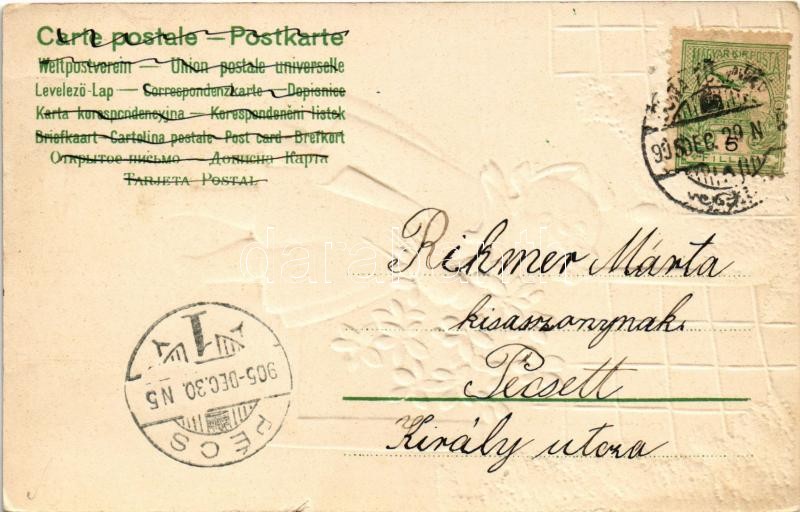 Carte postale — Postkarte
Weltpostverein — Union postale universelle
Levelező-Lap — Correspondenzkarte — Dopisnice
Karta korespondencyjna — Korespondenční lístek
Briefkaart — Cartolina postale — Post card — Brefkort
Открытое письмо — Дописна Карта
TARJETA POSTAL
MAGYAR KIR. POSTA
905 DEC. 29 N
5
6
FILL
Rihmer Márta
kisasszonynak
Pécsett
Király utcza
1
905 - DEC. 30. N5
PÉCS